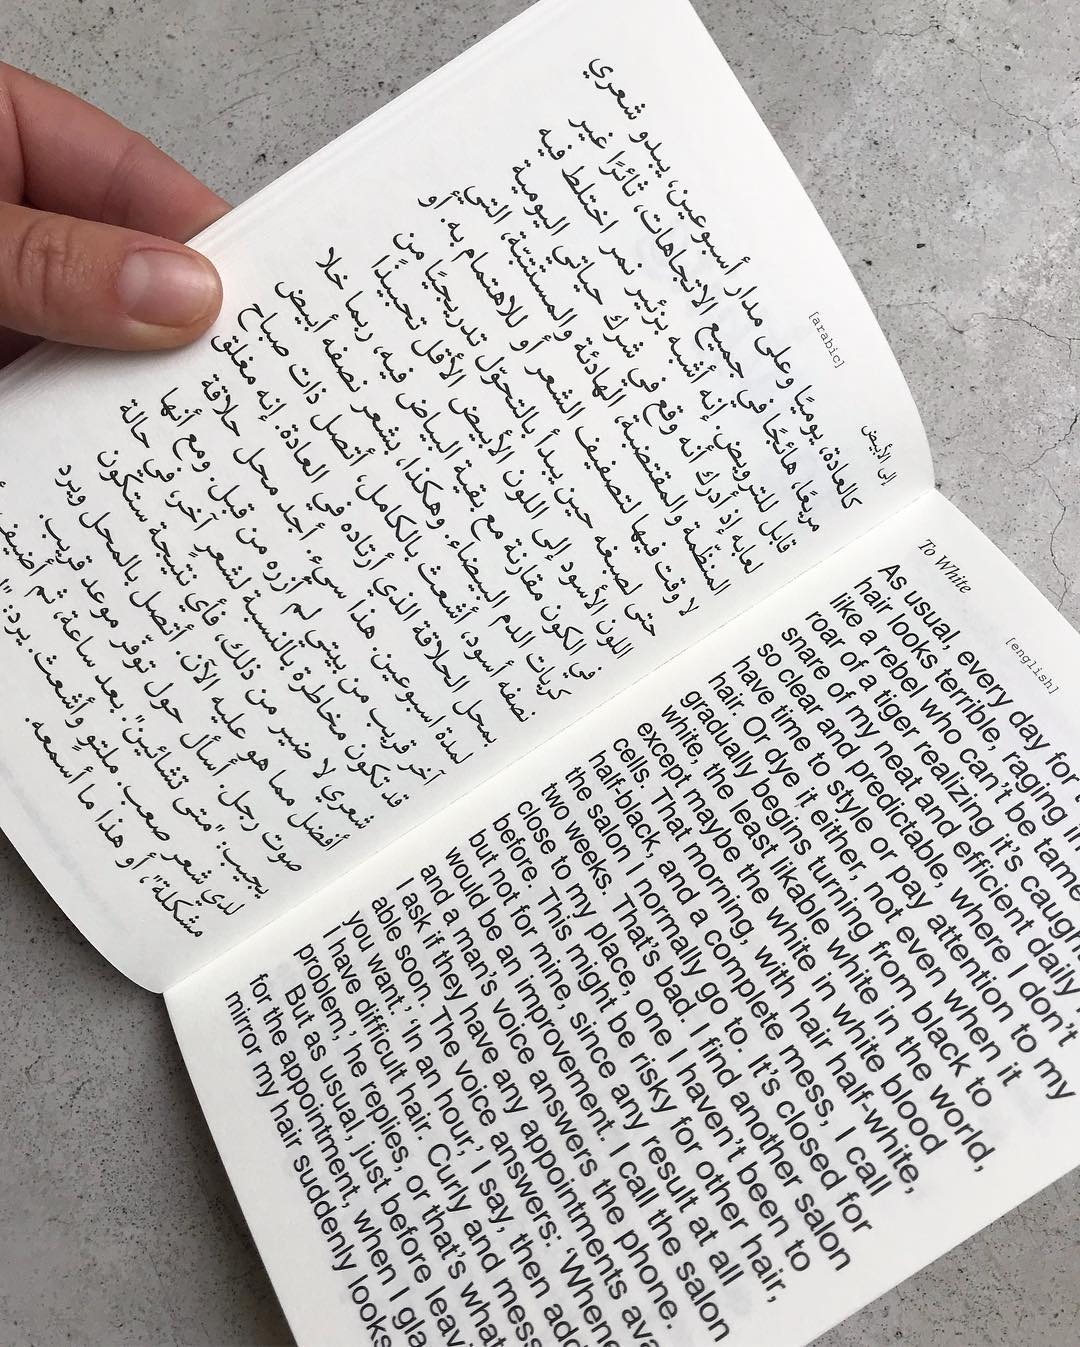 [arabic]
إلى الأبيض
كالعادة، يوميًا وعلى مدار أسبوعين، يبدو شعري
مريعًا، هائجًا في جميع الاتجاهات، ثائرًا غير
قابل للترويض. إنه أشبه بزئير نمر اختلط فيه
لعابه إذ أدرك أنه وقع في شرك حياتي اليومية
المنظّمة والمقتضبة، الهادئة والمستتبّة، التي
لا وقت فيها لتصفيف الشعر أو للاهتمام به. أو
حتى لصبغه حين يبدأ بالتحوّل تدريجيًا من
اللون الأسود إلى اللون الأبيض الأقل تحبيذًا
في الكون مقارنة مع بقية البياض فيه، ربما خلا
كريات الدم البيضاء. وهكذا، بشعر نصفه أبيض
نصفه أسود، أشعث بالكامل، أتصل ذات صباح
بمحل الحلاقة الذي أرتاده في العادة. إنه مغلق
لمدة اسبوعين. هذا سيء. أجد محل حلاقة
آخر قريب من بيتي لم أزره من قبل. ومع أنها
قد تكون مخاطرة بالنسبة لشعرٍ آخر، في حالة
شعري لا ضير من ذلك، فأي نتيجة ستكون
أفضل مما هو عليه الآن. أتصل بالمحل ويرد
صوت رجل. أسأل حول توفر موعد قريب.
يجيب: "متى تشائين". بعد ساعة، ثم أضيف
لدي شعر صعب. ملتوٍ وأشعث. يرد:
مشكلة"، أو هذا ما أسمعه.
[english]
To White
As usual, every day for
hair looks terrible, raging in
like a rebel who can't be tame
roar of a tiger realizing it's caugh
snare of my neat and efficient daily
so clear and predictable, where I don't
have time to style or pay attention to my
hair. Or dye it either, not even when it
gradually begins turning from black to
white, the least likable white in the world,
except maybe the white in white blood
cells. That morning, with hair half-white,
half-black, and a complete mess, I call
the salon I normally go to. It's closed for
two weeks. That's bad. I find another salon
close to my place, one I haven't been to
before. This might be risky for other hair,
but not for mine, since any result at all
would be an improvement. I call the salon
and a man's voice answers the phone.
I ask if they have any appointments ava
able soon. The voice answers: 'Whene
you want.' 'In an hour,' I say, then add
I have difficult hair. Curly and mess
problem, he replies, or that's what
But as usual, just before leavi
for the appointment, when I gla
mirror my hair suddenly looks